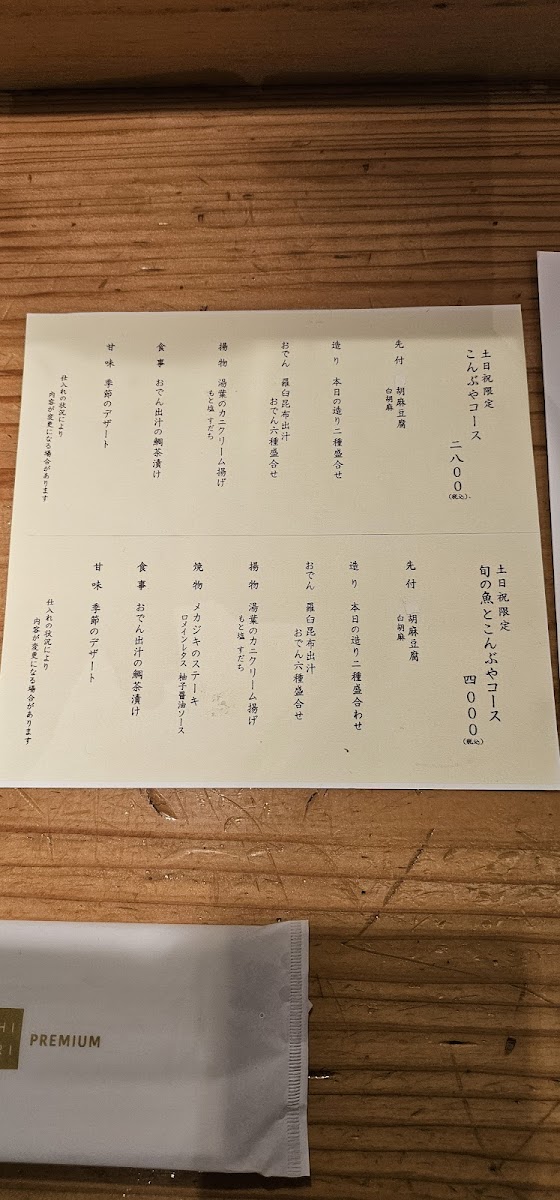 土日祝限定
こんぶやコース
二八00
(税込)
先付 胡麻豆腐
白胡麻
造り 本日の造り二種盛合せ
おでん 羅臼昆布出汁
おでん六種盛合せ
揚物 湯葉のカニクリーム揚げ
もと塩 すだち
食事 おでん出汁の鯛茶漬け
甘味 季節のデザート
仕入れの状況により
内容が変更になる場合があります
土日祝限定
旬の魚とこんぶやコース
四000
(税込)
先付 胡麻豆腐
白胡麻
造り 本日の造り二種盛合わせ
、
おでん 羅臼昆布出汁
おでん六種盛合せ
揚物 湯葉のカニクリーム揚げ
もと塩 すだち
焼物 メカジキのステーキ
ロメインレタス 柚子醤油ソース
食事 おでん出汁の鯛茶漬け
甘味 季節のデザート
仕入れの状況により
内容が変更になる場合があります
HI
RI
PREMIUM